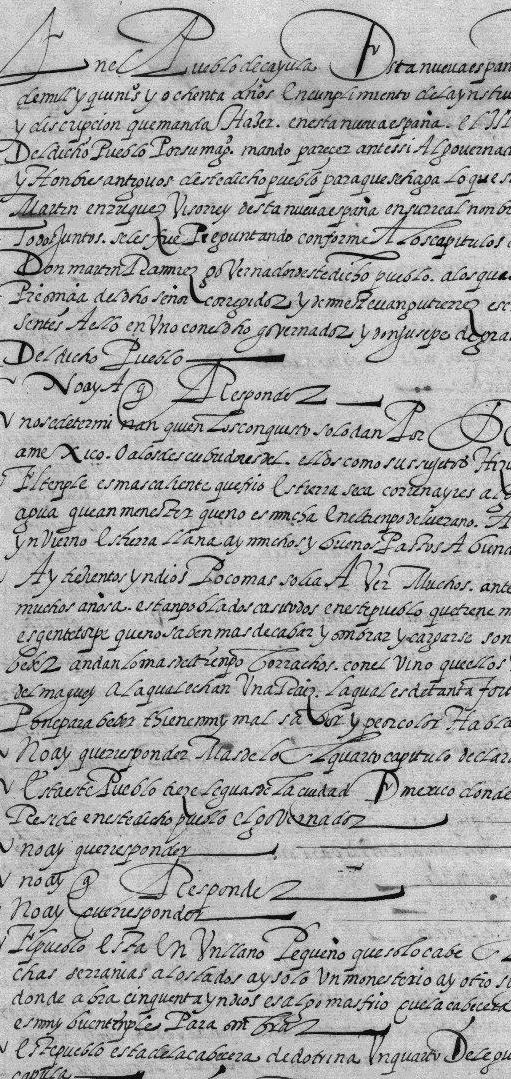 En el Pueblo de çayula Desta nueva espan
de mill y quinios y ochenta años En cumplimiento de la ynstru
y discripcion que manda Hazer. en esta nueva españa. el Ill
Del dicho Pueblo Por su magd. mando parecer ante ssi Al governad
y Honbres antiguos deste dicho pueblo para que se haga Lo que s
Martin enrriquez Visorrey desta nueva españa en su real nonbr
Todos Juntos. se les fue Prepuntando conforme A los capitulos
Don martin Ramirez governador deste dicho pueblo. a los qua
señor corregidor y de mestevan gutierrez esc
sentes A ello en Uno con el dho governador y don Jusepe de gra
Del dicho Pueblo
No ay A q Responder
no se determinan quien Los conquisto solo dan Por
a mexico. O a los descubridores del. ellos como sus sujetos
El tenple es mas caliente que frio Es tierra seca corren ayres al
agua que an menester que no es mucha En el tienpo de el verano. A
ynvierno Es tierra llana ay muchos y buenos Pastos Abund
Ay trezientos yndios Poco mas solia A Ver Muchos. ante
muchos años a. estan poblados casi todos en este pueblo que tiene m
es gente torpe que no saben mas de cabar y onbrar y cargarse son
beber andan lo mas del tienpo borrachos. con el Vino que ellos
del maguey A la qual echan Una Raiz. La qual es de tanta for
Pone para beber tiene muy mal sabor y peor color Habla
No ay que rresponder Mas de lo El quarto capitulo declar
Esta este Pueblo treze leguas de La ciudad De mexico donde
Reside en este dicho pueblo el governador
no ay que rresponder
no ay q Responder
No ay que rresponder
El pueblo Esta En Un llano Pequeño que solo cabe
chas serranias a los lados ay solo Un monesterio ay otro
donde abra cinquenta yndios es algo mas frio que la cabecera
es muy buen tenple Para onbrar
este pueblo esta de la cabecera de dotrina Un quarto De legu
capula